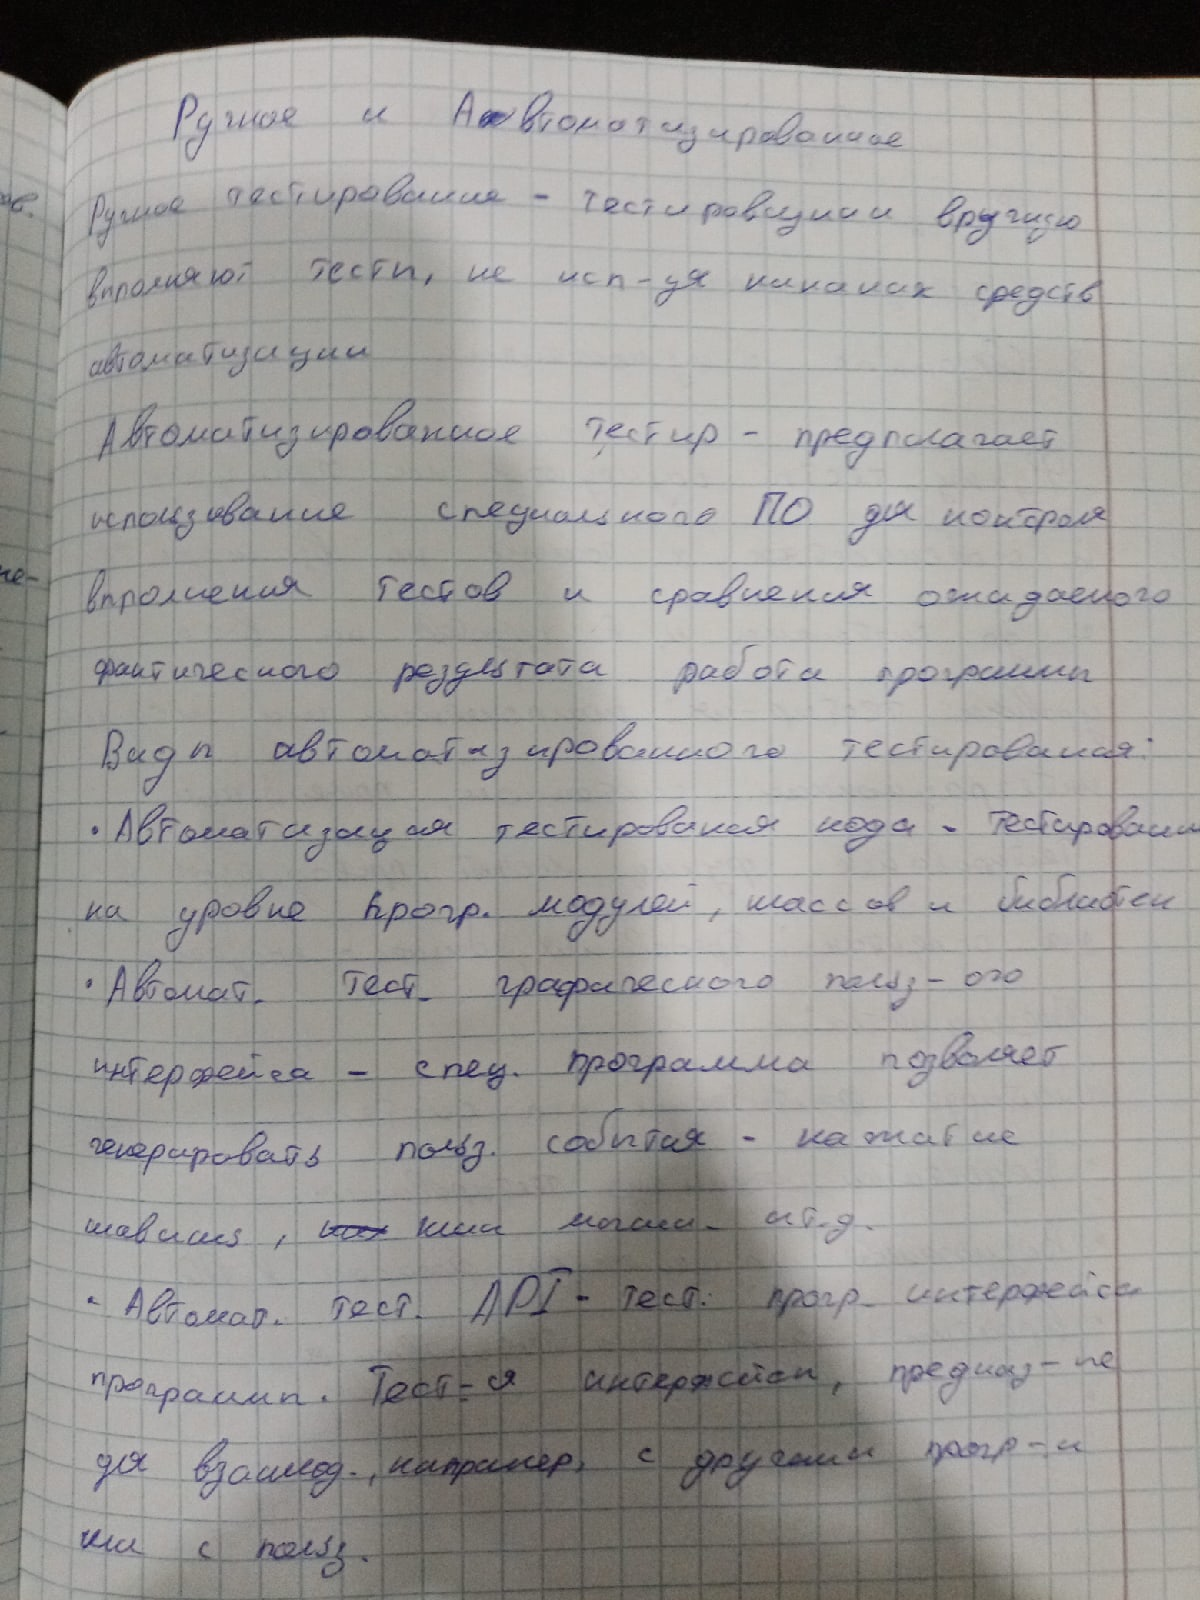 Ручное и Автоматизированное
Ручное тестирование - тестировщики вручную
выполняют тесты, не исп-уя никаких средств
автоматизации
Автоматизированное тестир - предполагает
использование специального ПО для контроля
выполнения тестов и сравнения ожидаемого
фактического результата работы программы
Виды автоматизированного тестирования:
• Автоматизация тестирования кода - Тестирование
на уровне прогр. модулей, классов и библиотек
• Автомат. тест. графического польз-ого
интерфейса - спец. программа позволяет
генерировать польз. события - нажатие
клавиш, или мыши и т.д.
• Автомат. тест. API - тест. прогр. интерфейса
программы. Тест-я интерфейсы, предназ-ые
для взаимод., например, с другими прогр-и
или с польз.